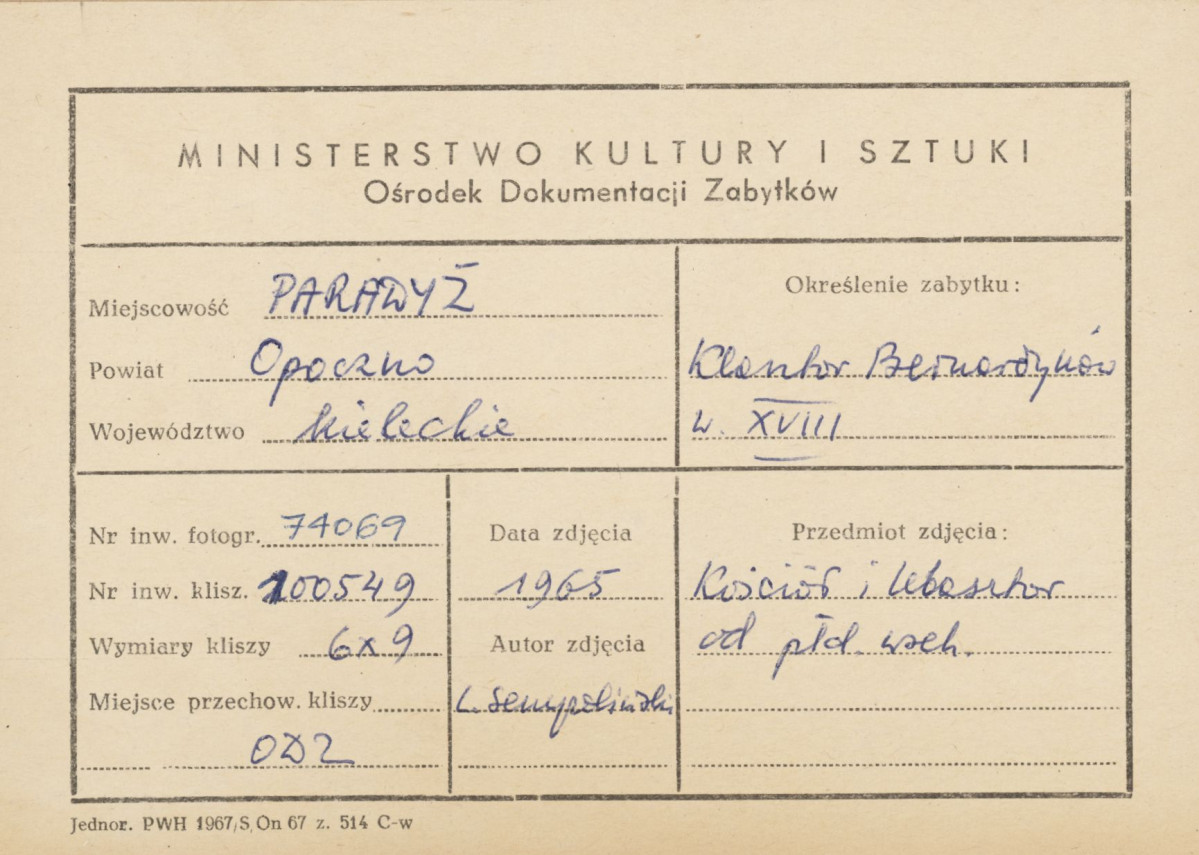 MINISTERSTWO KULTURY I SZTUKI
Ośrodek Dokumentacji Zabytków
Miejscowość PARADYŻ
Powiat Opoczno
Województwo kieleckie
Określenie zabytku:
Klasztor Bernardynów
w. XVIII
Nr inw. fotogr. 74069
Nr inw. klisz. 100549
Wymiary kliszy 6x9
Miejsce przechow. kliszy
ODZ
Data zdjęcia
1965
Autor zdjęcia
L. Sempoliński
Przedmiot zdjęcia:
Kościół i klasztor
od płd. wsch.
Jednor. PWH 1967/S, On 67 z. 514 C-w